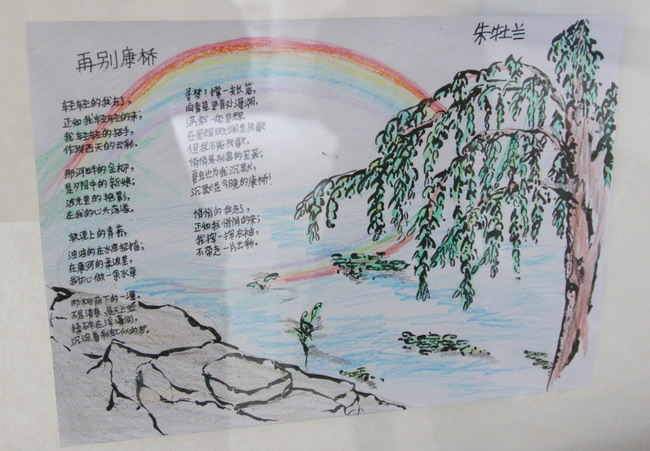 再别康桥
朱牡兰
轻轻的我走了,
正如我轻轻的来;
我轻轻的招手,
作别西天的云彩。
那河畔的金柳,
是夕阳中的新娘;
波光里的艳影,
在我的心头荡漾。
软泥上的青荇,
油油的在水底招摇;
在康河的柔波里,
我甘心做一条水草
那树荫下的一潭,
不是清泉,是天上虹
揉碎在浮藻间,
沉淀着彩虹似的梦。
寻梦?撑一支长篙,
向青草更青处漫溯,
满载一船星辉,
在星辉斑斓里放歌
但我不能放歌,
悄悄是别离的笙箫;
夏虫也为我沉默,
沉默是今晚的康桥!
悄悄的我走了,
正如我悄悄的来;
我挥一挥衣袖,
不带走一片云彩。